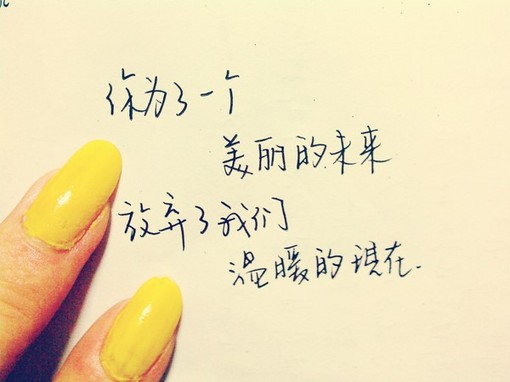 你为了一个
美丽的未来
放弃了我们
温暖的现在.